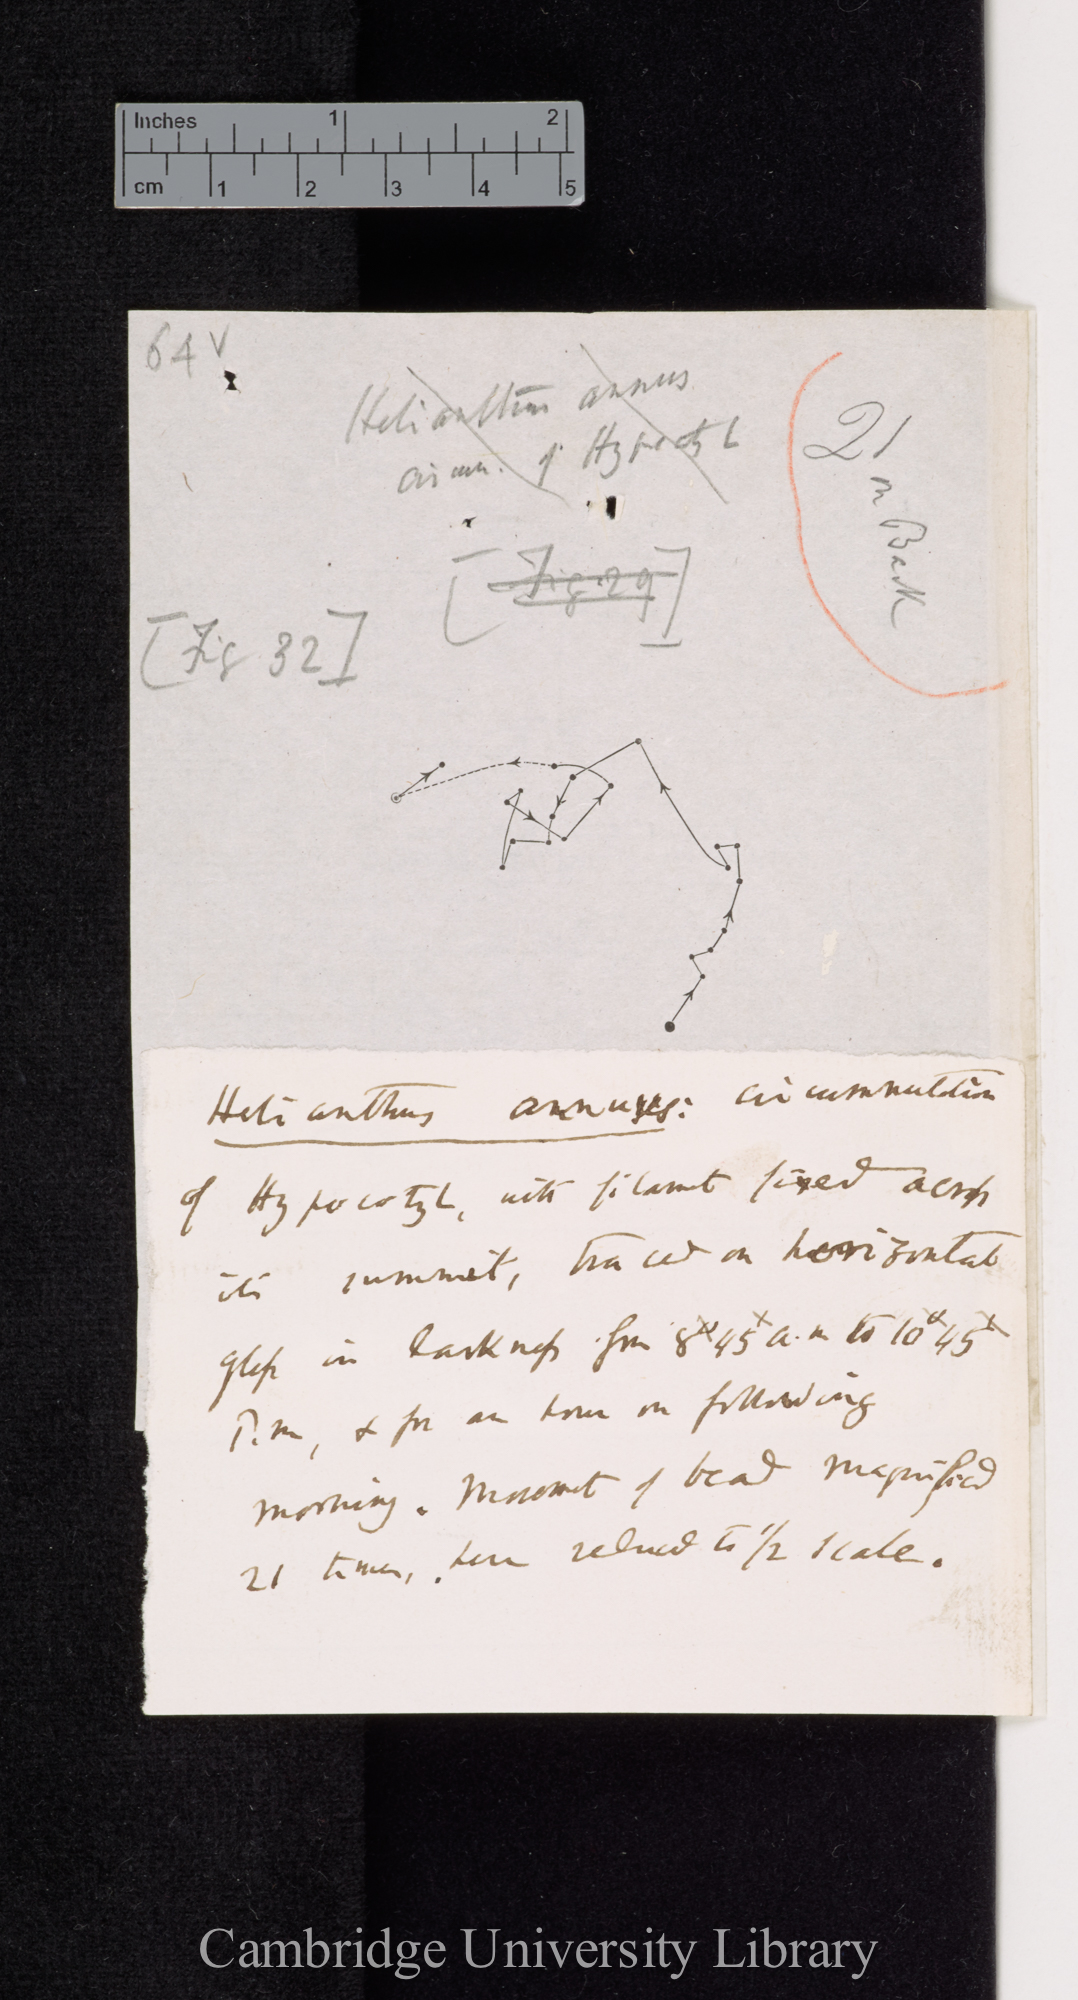 Inches 1 2
cm 1 2 3 4 5
64 v
Helianthus annus
circum. of Hypocotyl
21 on Back
[Fig. 29]
[Fig 32]
Helianthus annuus: circumnutation
of Hypocotyl, with filament fixed across
its summit, traced on horizontal
glass in darkness from 8 45 a.m to 10 45
P.m, & for an hour on following
morning. Movement of bead magnified
21 times, here reduced to 1/2 scale.
Cambridge University Library